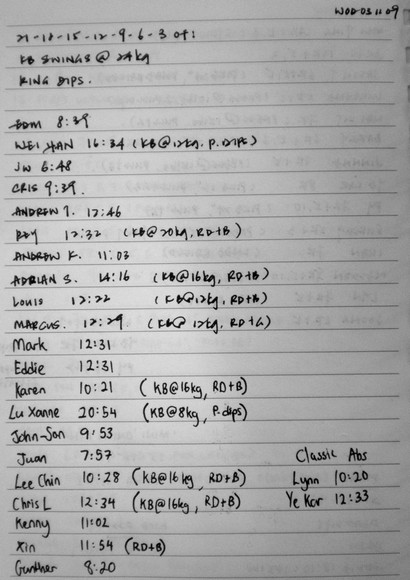 WOD 03.11.09
21-18-15-12-9-6-3 of:
KB SWINGS @ 24kg
RING DIPS.
EDM 8:39
WEI HAN 16:34 (KB@12kg, P.DIPS)
JW 6:48
CRIS 9:39.
ANDREW T. 12:46
12:32 (KB@20kg, RD+B)
ANDREW K. 11:03
ADRIAN S. 14:16 (KB@16kg, RD+B)
LOUIS 12:22 (KB@12kg, RD+B)
MARCUS. 12:29 (KB@12kg, RD+G)
Mark 12:31
Eddie 12:31
Karen 10:21 (KB@16kg, RD+B)
Lu Xanne 20:54 (KB@8kg, P.dips)
John-Son 9:53
Juan 7:57 Classic Abs
Lee Chin 10:28 (KB@16kg, RD+B) Lynn 10:20
Chris L 12:34 (KB@16kg, RD+B) Ye Kar 12:33
Kenny 11:02
Xin 11:54 (RD+B)
Gunther 8:20